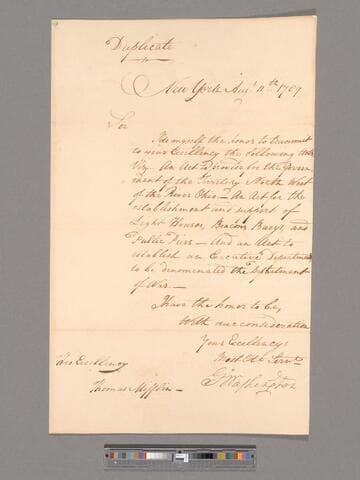 Duplicate
New York Augt 11th 1789
Sir
I do myself the honor to transmit
to your Excellency the following Acts
Viz. An Act to provide for the Govern
ment of the Territory North West
of the River Ohio — An Act for the
establishment and support of
Light Houses, Beacons, Buoys, and
Public Piers — And an Act to
establish an Executive Department
to be denominated the Department
of War. —
I have the honor to be,
With due consideration
Your Excellency's
Most Obt Servt
G Washington
His Excellency
Thomas Mifflin —